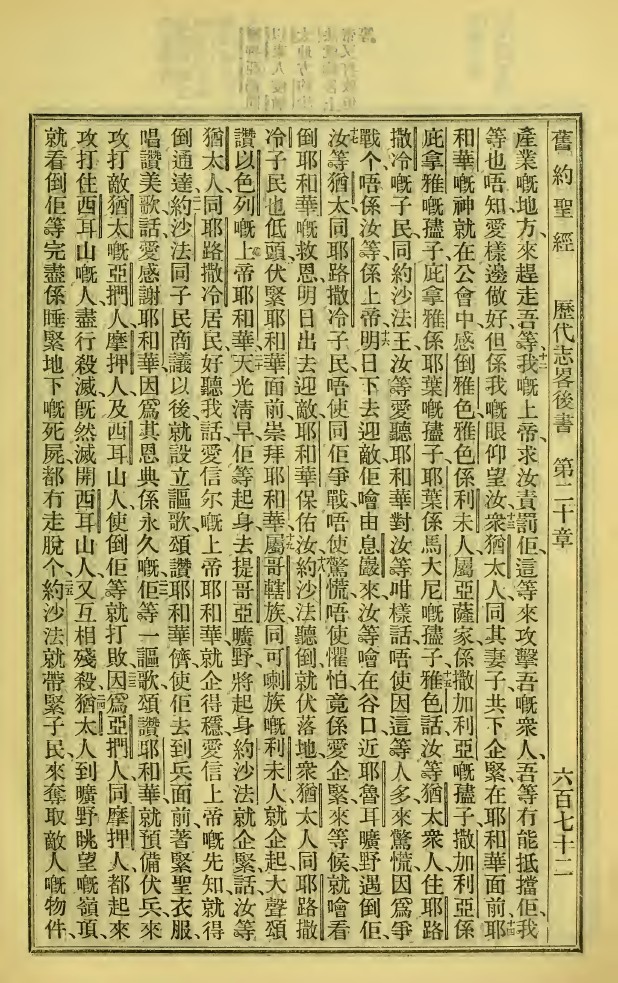 舊約聖經 歷代志畧後書 第二十章 六百七十二
產業嘅地方、來趕走吾等、十二我嘅上帝求汝責罰佢、這等來攻擊吾嘅衆人、吾等冇能抵擋佢、我
等也唔知愛樣邊做好、但係我嘅眼仰望汝、十三衆猶太人同其妻子、共下企緊在耶和華面前、十四耶
和華嘅神就在公會中感倒雅色、雅色係利未人、屬亞薩家、係撒加利亞嘅孻子、撒加利亞係
庇拿雅嘅孻子、庇拿雅係耶葉嘅孻子、耶葉係馬大尼嘅孻子、十五雅色話、汝等猶太衆人、住耶路
撒冷嘅子民、同約沙法王、汝等愛聽、耶和華對汝等咁樣話、唔使因這等人多來驚慌、因爲爭
戰个唔係汝等、係上帝、十六明日下去迎敵佢、噲由息巖來、汝等噲在谷口近耶魯耳曠野遇倒佢、
十七汝等猶太同耶路撒冷子民、唔使同佢爭戰、唔使驚慌、唔使懼怕、竟係愛企緊來等候、就噲看
倒耶和華嘅救恩、明日出去迎敵、耶和華保佑汝、十八約沙法聽倒就伏落地、衆猶太人同耶路撒
冷子民、也低頭伏緊耶和華面前、崇拜耶和華、十九屬哥轄族、同可喇族嘅利未人、就企起大聲頌
讚以色列嘅上帝耶和華、二十天光淸早、佢等起身去提哥亞曠野、將起身、約沙法就企緊話、汝等
猶太人、同耶路撒冷居民、好聽我話、愛信尔嘅上帝耶和華、就企得穩、愛信上帝嘅先知、就得
倒通達、二一約沙法同子民商議以後、就設立謳歌頌讚耶和華儕、使佢去到兵面前、著緊聖衣服、
唱讚美歌、話愛感謝耶和華、因爲其恩典係永久嘅、二二佢等一謳歌頌讚、耶和華就預備伏兵、來
攻打敵猶太嘅亞捫人、摩押人、及西耳山人、使倒佢等就打敗、二三因爲亞捫人同摩押人、都起來
攻打住西耳山嘅人、盡行殺滅、旣然滅開西耳山人、又互相殘殺、二四猶太人到曠野眺望嘅嶺頂、
就看倒佢等完盡係睡緊地下嘅死屍、都冇走脫个、二五約沙法就帶緊子民、來奪取敵人嘅物件、